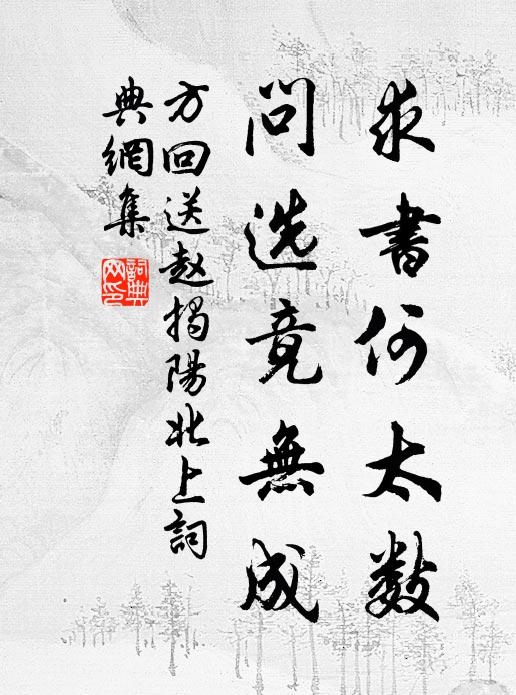 求書何太数
問选竟無成
方回送赵揭陽北上詞
典網集
詞典
网印